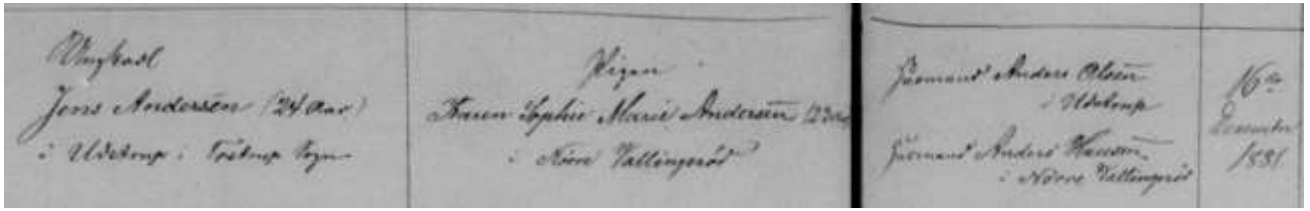 Ungkarl
Jens Andersen (24 Aar)
i Udstrup i Tostrup Sogn
Pigen
Karen Sophie Marie Andersen (23 Aar)
i Nörre Vallingeröd
Huusmand Anders Olsen
i Udstrup
Huusmand Anders Hansen
i Nörre Vallingeröd
16de
December
1881